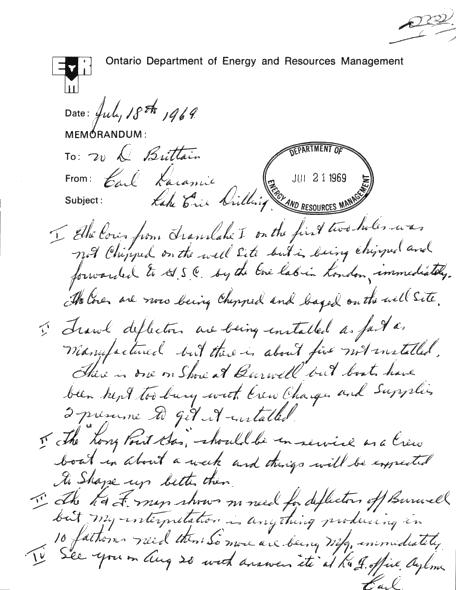 2232
Ontario Department of Energy and Resources Management
EYR
M
Date: July 18th 1969
MEMORANDUM:
To: W D Brittain
From: Carl
Subject: Lake Erie Drilling
DEPARTMENT OF
JUL 21 1969
ENERGY AND RESOURCES MANAGEMENT
I The Cores from Translake I on the first two holes was
not Chipped on the well Site but is being chipped and
forwarded to G.S.C. by the Core lab in London, immediately.
The Cores are now being Chipped and baged on the well Site.
II Trawl deflectors are being installed as fast as
Manufactured but there is about five not installed.
There is one on Shore at Burwell but boats have
been kept too busy with Crew Changes and Supplies
I presume to get it installed.
II The "Long Point Gas", should be in service as a Crew
boat in about a week and things will be expected
to Shape up better then.
III The L & F map shows no need for deflectors off Burwell
but my interpretation is anything producing in
10 fathoms need them So more are being mfg. immediately
IV See you on Aug 20 with answer at L & F. office, Aylmer
Carl